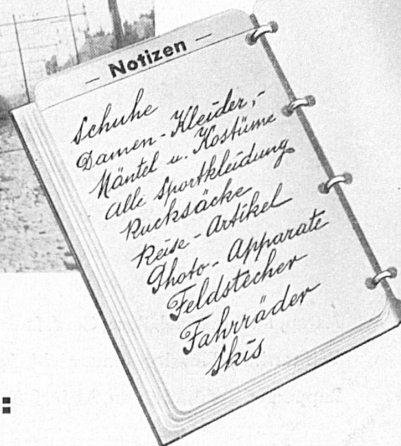 – Notizen –
Schuhe
Damen-Kleider,-
Mäntel u. Kostüme
Alle Sportkleidung
Rucksäcke
Reise-Artikel
Photo-Apparate
Feldstecher
Fahrräder
Skis
: